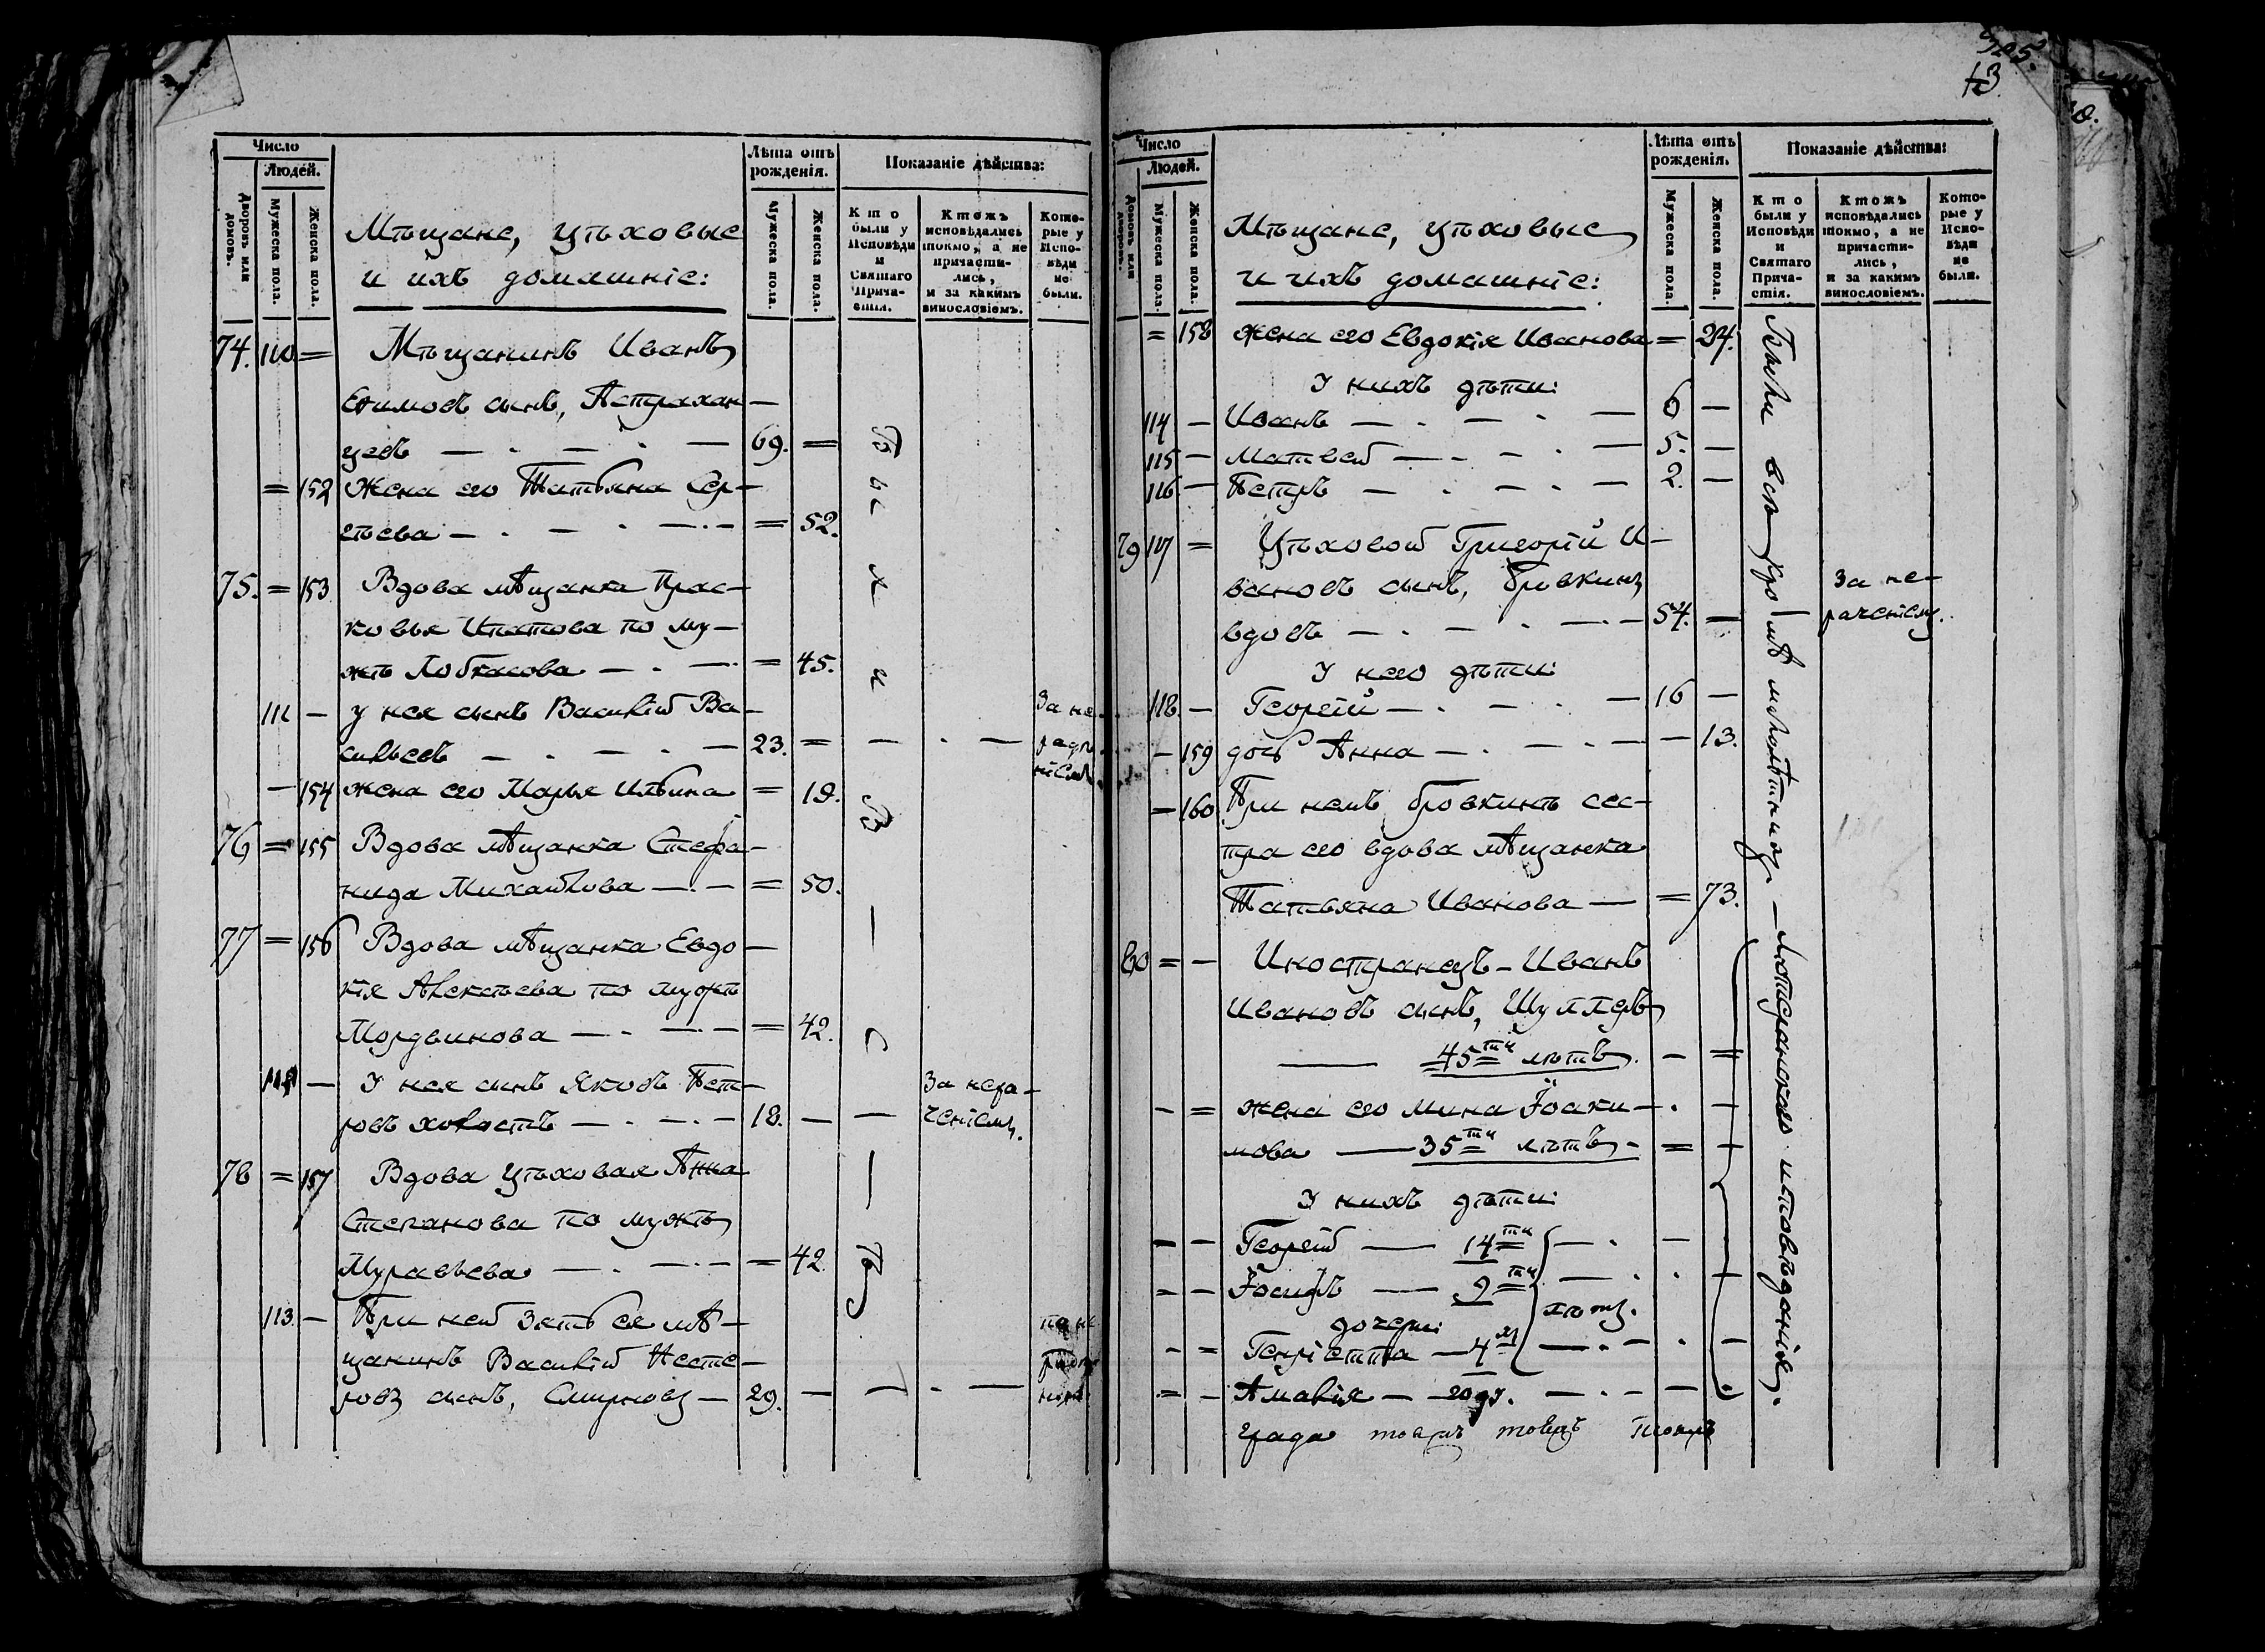 Число
Людей.
Дворовъ или домовъ.
Мужеска пола.
Женска пола.
Мѣщане, цѣховые
и ихъ домашніе:
Лѣта отъ
рожденія.
Мужеска пола.
Женска пола.
Показаніе дѣйства:
Кто
были у
Исповѣди
и
Святаго
Прича-
стія.
Ктожъ
исповѣдались
токмо, а не
причасти-
лись,
и за какимъ
винословіемъ.
Кото-
рые у
Испо-
вѣди
не
были.
74. 110 = Мѣщанинъ Иванъ
Ефимовъ сынъ, Астрахан-
цевъ — 69. =
= 152 Жена его Татьяна Сер-
гѣева — = 52.
75. = 153 Вдова мѣщанка Прас-
ковья Ипатова по му-
жѣ Лобкасова — = 45.
111 — У нея сынъ Василій Ва-
сильевъ — 23. =
За не-
— 154 жена его Марья Ильина = 19.
76 = 155 Вдова мѣщанка Стефа-
нида Михайлова — = 50.
77 = 156 Вдова мѣщанка Евдо-
кія Алексѣева по мужѣ
Мордвинова — = 42.
— У нея сынъ Яковъ Пет-
ровъ холостъ — 18. —
За нера-
ченіемъ.
78 = 157 Вдова цѣховая Анна
Степанова по мужѣ
Муравьева — = 42
113. — При ней зять ея мѣ-
щанинъ Василій Несте-
ровъ сынъ, Смирновъ — 29. —
305.
13.
Число
Людей.
Домовъ или дворовъ.
Мужеска пола.
Женска пола.
Мѣщане, цѣховые
и ихъ домашніе:
Лѣта отъ
рожденія.
Мужеска пола.
Женска пола.
Показаніе дѣйства:
Кто
были у
Исповѣди
и
Святаго
Прича-
стія.
Ктожъ
исповѣдались
токмо, а не
причасти-
лись,
и за какимъ
винословіемъ.
Кото-
рые у
Испо-
вѣди
не
были.
= 158 жена его Евдокія Иванова = 24.
У нихъ дѣти:
114 — Иванъ — 6 —
115 — Матвей — 5. —
116 — Петръ — 2. —
79 117 = Цѣховой Григорій И-
вановъ сынъ, Бровкинъ
вдовъ — 54. —
За не-
раченіемъ.
У него дѣти:
118. — Георгій — 16 —
— 159 дочь Анна — 13.
— 160 При немъ Бровкинѣ сес-
тра его вдова мѣщанка
Татьяна Иванова — = 73.
80 = — Иностранецъ - Иванъ
Ивановъ сынъ, Шуллеръ
— 45ти лѣтъ. — =
— = жена его Мина Іоаки-
мова — 35ти лѣтъ - = —
У нихъ дѣти:
= — Георгій — 14ти
= — Іосифъ — 9ти
лѣтъ.
дочери:
- = Генріетта — 4х
= - Амалія — 2 год.
Были всѣ кромѣ малолѣтныхъ — Лютеранскаго исповѣданія.